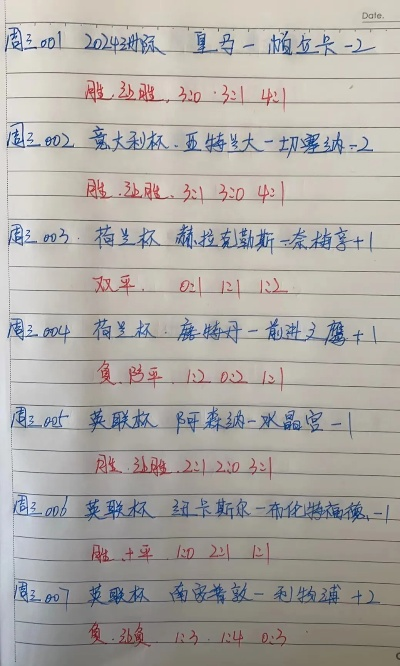 Date.
周三001 2024洲际 皇马-帕丘卡-2
胜.让胜. 3:0 3:1 4:1
周三002 意大利杯.亚特兰大-切塞纳-2
胜.让胜. 3:1 3:0 4:1
周三003. 荷兰杯 赫拉克勒斯-奈梅亨+1
双平. 0:1 1:1 1:2
周三004 荷兰杯. 鹿特丹-前进之鹰+1
负.防平. 1:2 0:2 1:1
周三005 英联杯 阿森纳-水晶宫-1
胜.让胜.2:1 2:0 3:1
周三006 英联杯 纽卡斯尔-布伦特福德.-1
胜.+平. 1:0 2:1 1:1
周三007 英联杯 南安普敦-利物浦+2
负.让负. 1:3. 1:4 0:3